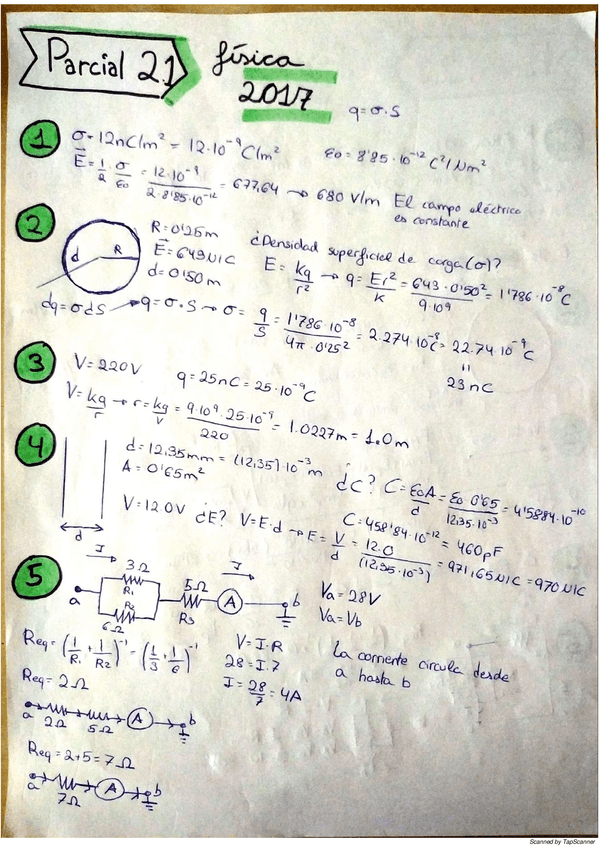 Parcial 2.1 física
2017
q=σ·S
1 σ=12nC/m² = 12·10⁻⁹C/m² ε₀=8'85·10⁻¹² C²/Nm²
E=1/2 σ/ε₀ = 12·10⁻⁹/2·8'85·10⁻¹² = 677,64 → 680 V/m El campo eléctrico
es constante
2 R=0'25m
E=643N/C
d=0'50m
d R
¿Densidad superficial de carga(σ)?
E= kq/r² → q=Er²/K = 643·0'50²/9·10⁹ = 1'786·10⁻⁸C
dq=σdS → q=σ·S → σ= q/S = 1'786·10⁻⁸/4π·0'25² = 2.274·10⁻⁸C = 22.74·10⁻⁹C
=
23nC
3 V=220V q=25nC=25·10⁻⁹C
V=kq/r → r=kq/V = 9·10⁹·25·10⁻⁹/220 = 1.0227m = 1.0m
4 d=12,35mm=(12,35)·10⁻³m
A=0'65m²
¿C? C=ε₀A/d = ε₀·0'65/12,35·10⁻³ = 4'5884·10⁻¹⁰
C=458'84·10⁻¹² = 460pF
d
V=12.0V ¿E? V=E·d → E=V/d = 12.0/(12,35·10⁻³) = 971,65N/C = 970N/C
5 I 3Ω I
a R₁ 5Ω A b
R₂ R₃
6Ω
Va=28V
Va=Vb
Req=(1/R₁+1/R₂)⁻¹=(1/3+1/6)⁻¹
Req=2Ω
V=I·R
28=I·7
I=28/7=4A
La corriente circula desde
a hasta b
a 2Ω 5Ω A b
Req=2+5=7Ω
a 7Ω A b
Scanned by TapScanner